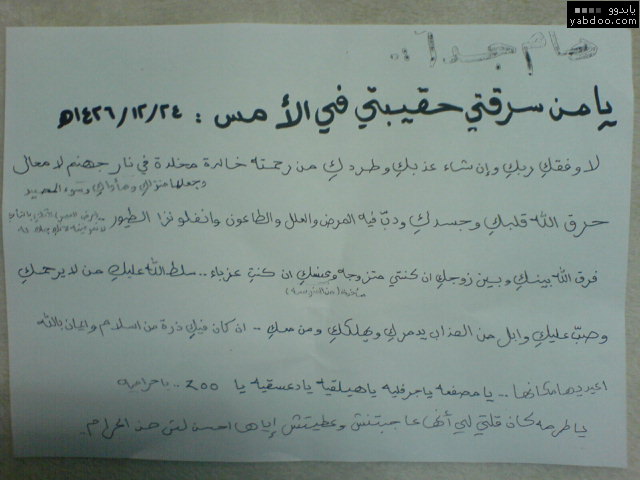 يابدوو
yabdoo.com
هام جداً ..
يا من سرقتي حقيبتي في الأمس : ١٤٢٦/١٢/٢٤هـ
لا وفقكِ ربكِ وإن شاء عذبكِ وطردكِ من رحمته خالدة مخلدة في نار جهنم لا محال
وجعلها منزلكِ ومأواكِ وسوء المصير
حرق الله قلبكِ وجسدكِ ودبّ فيه المرض والعلل والطاعون وانفلونزا الطيور ..
فرق الله بينكِ وبين زوجكِ ان كنتي متزوجه وجعلكِ ان كنتِ عزباء .. سلط الله عليكِ من لا يرحمكِ
وصبّ عليكِ وابل من العذاب يدمركِ ويهلككِ ومن معكِ .. ان كان فيكِ ذرة من اسلام وايمان بالله
اعيديها مكانها ... يا مصفعه يا جرفليه يا هيلقيه يا دعسقيه يا ٢٥٥ .. يا حراميه
يا طرمه كان قلتي لي أنها عاجبتنش وعطيتش إياها احسن لش من الحرام ..